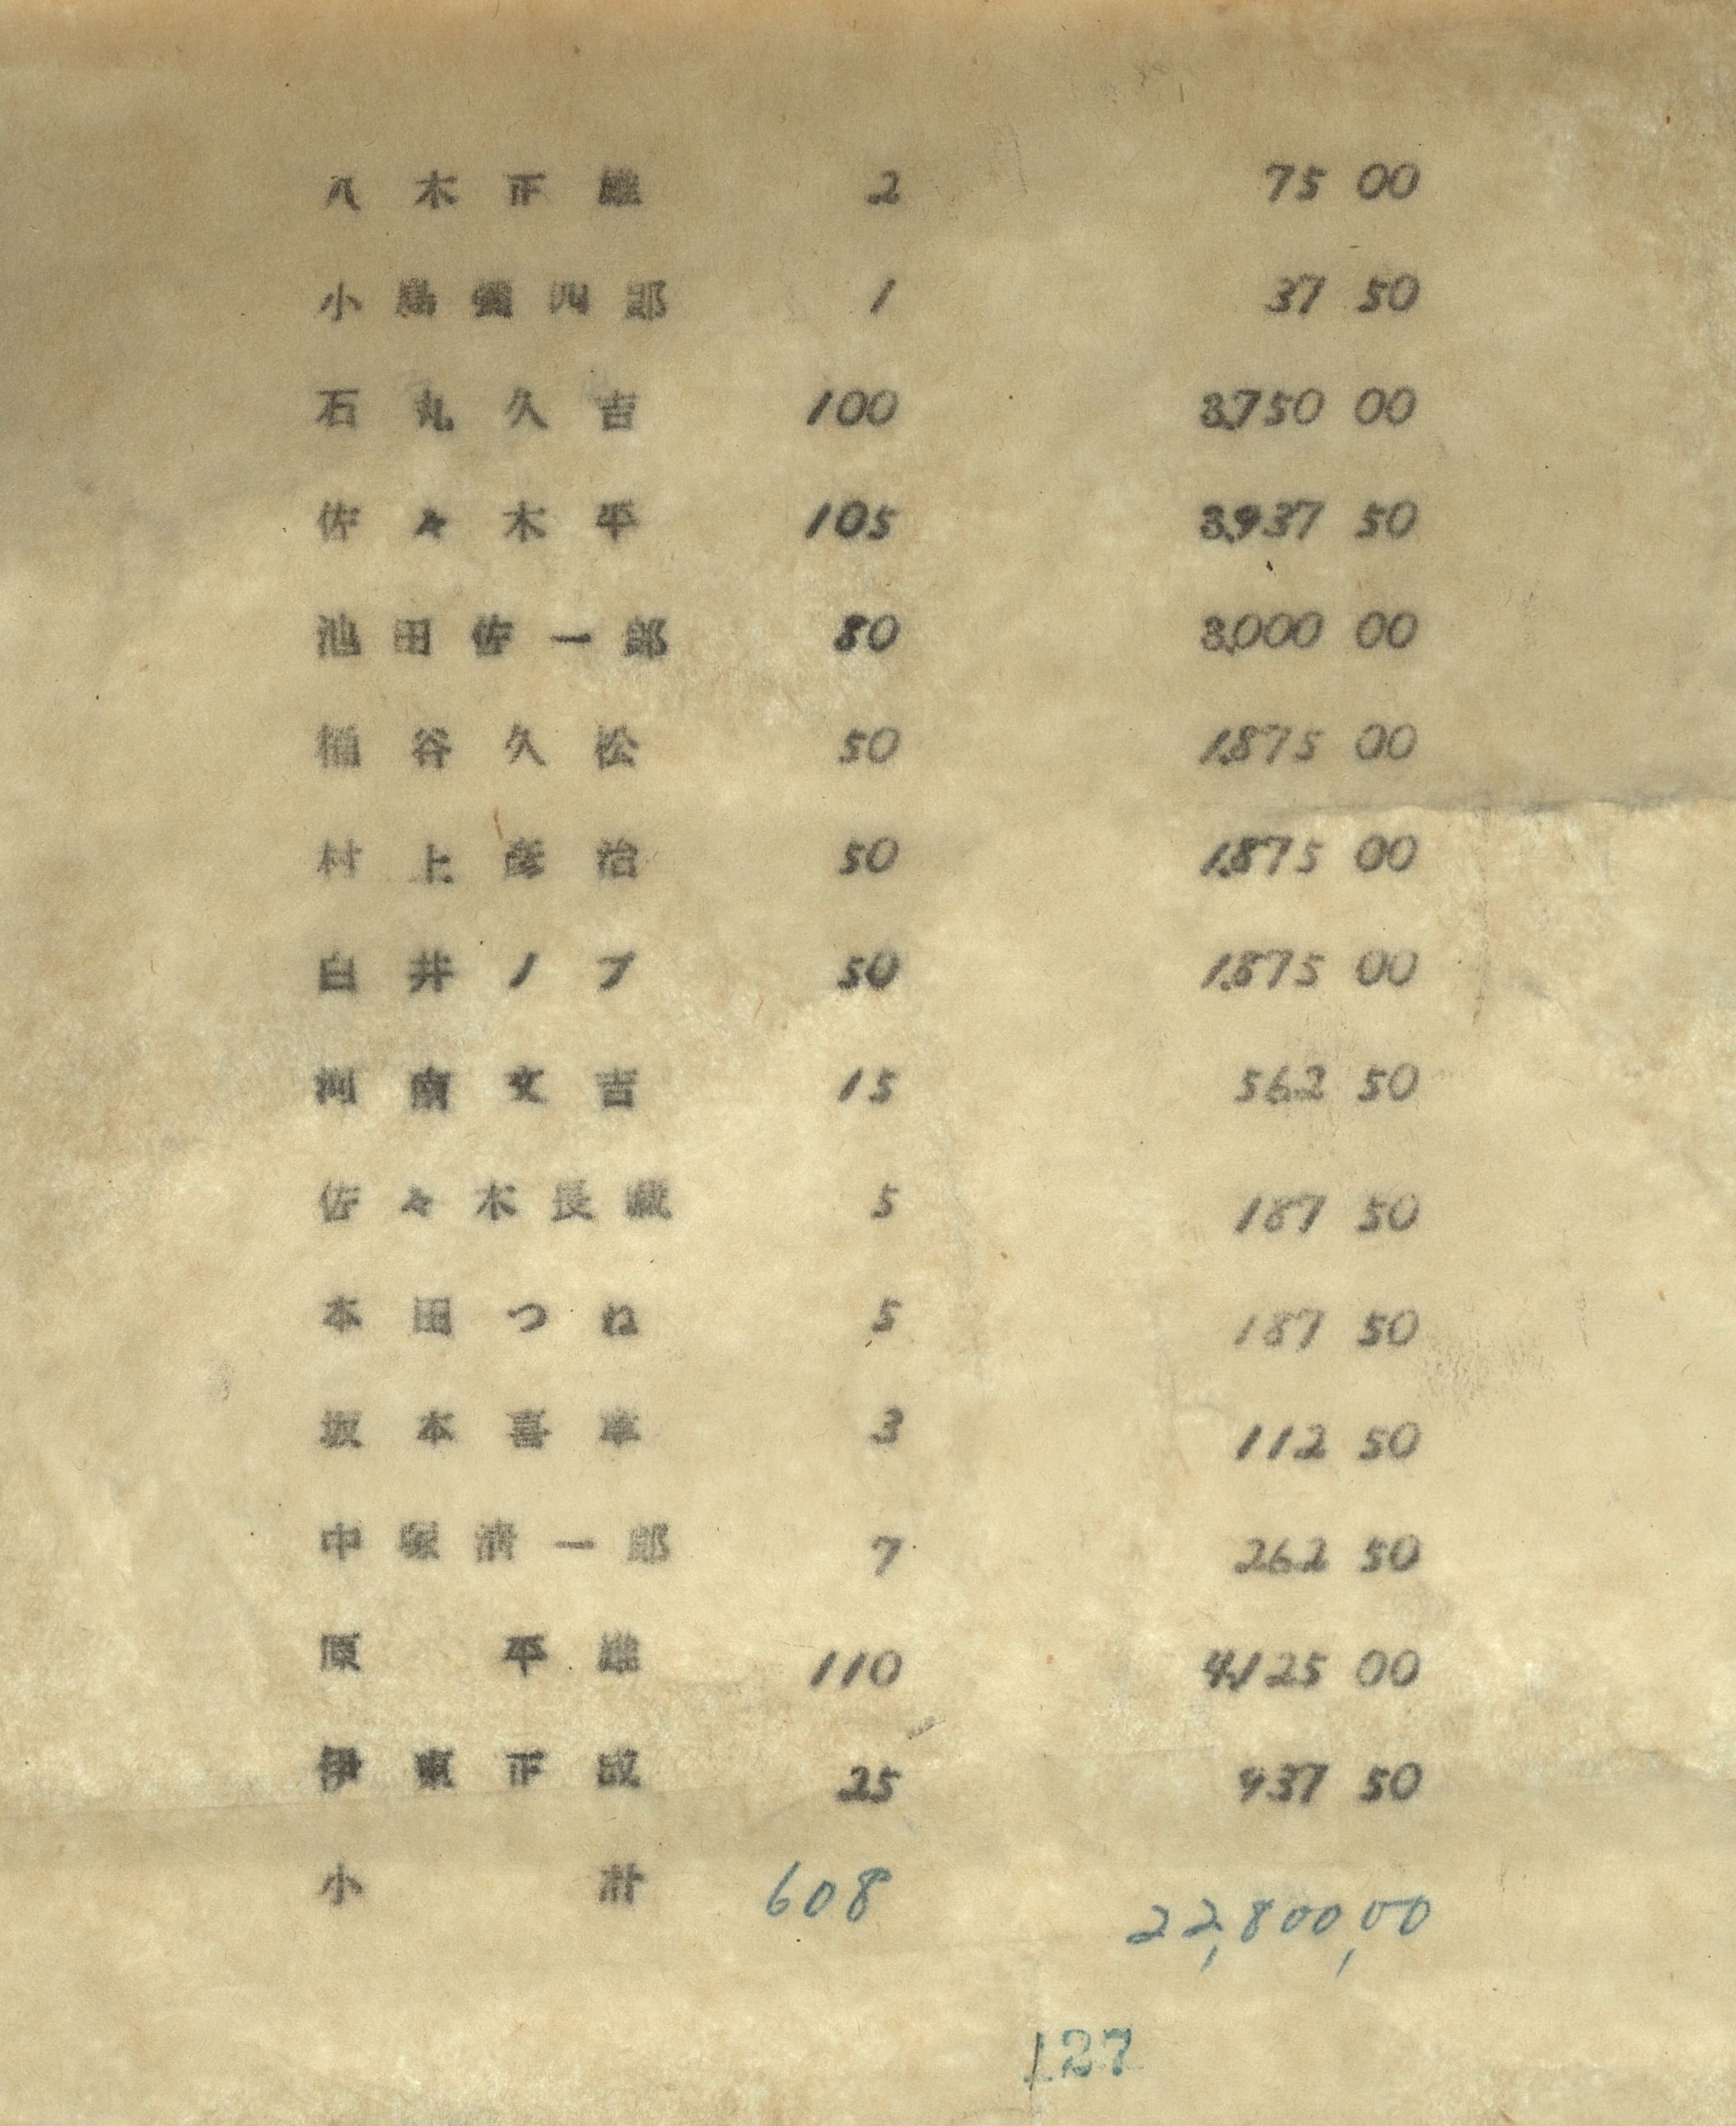 八木正雄 2 75 00
小島彌四郎 1 37 50
石丸久吉 100 3,750 00
佐々木平 105 3,937 50
池田佐一郎 80 3,000 00
桶谷久松 50 1,875 00
村上彦治 50 1,875 00
白井ノブ 50 1,875 00
河南文吉 15 562 50
佐々木長藏 5 187 50
本田つね 5 187 50
坂本喜 3 112 50
中塚清一郎 7 262 50
原 平雄 110 4,125 00
伊東正成 25 937 50
小計 608 22,800,00
127